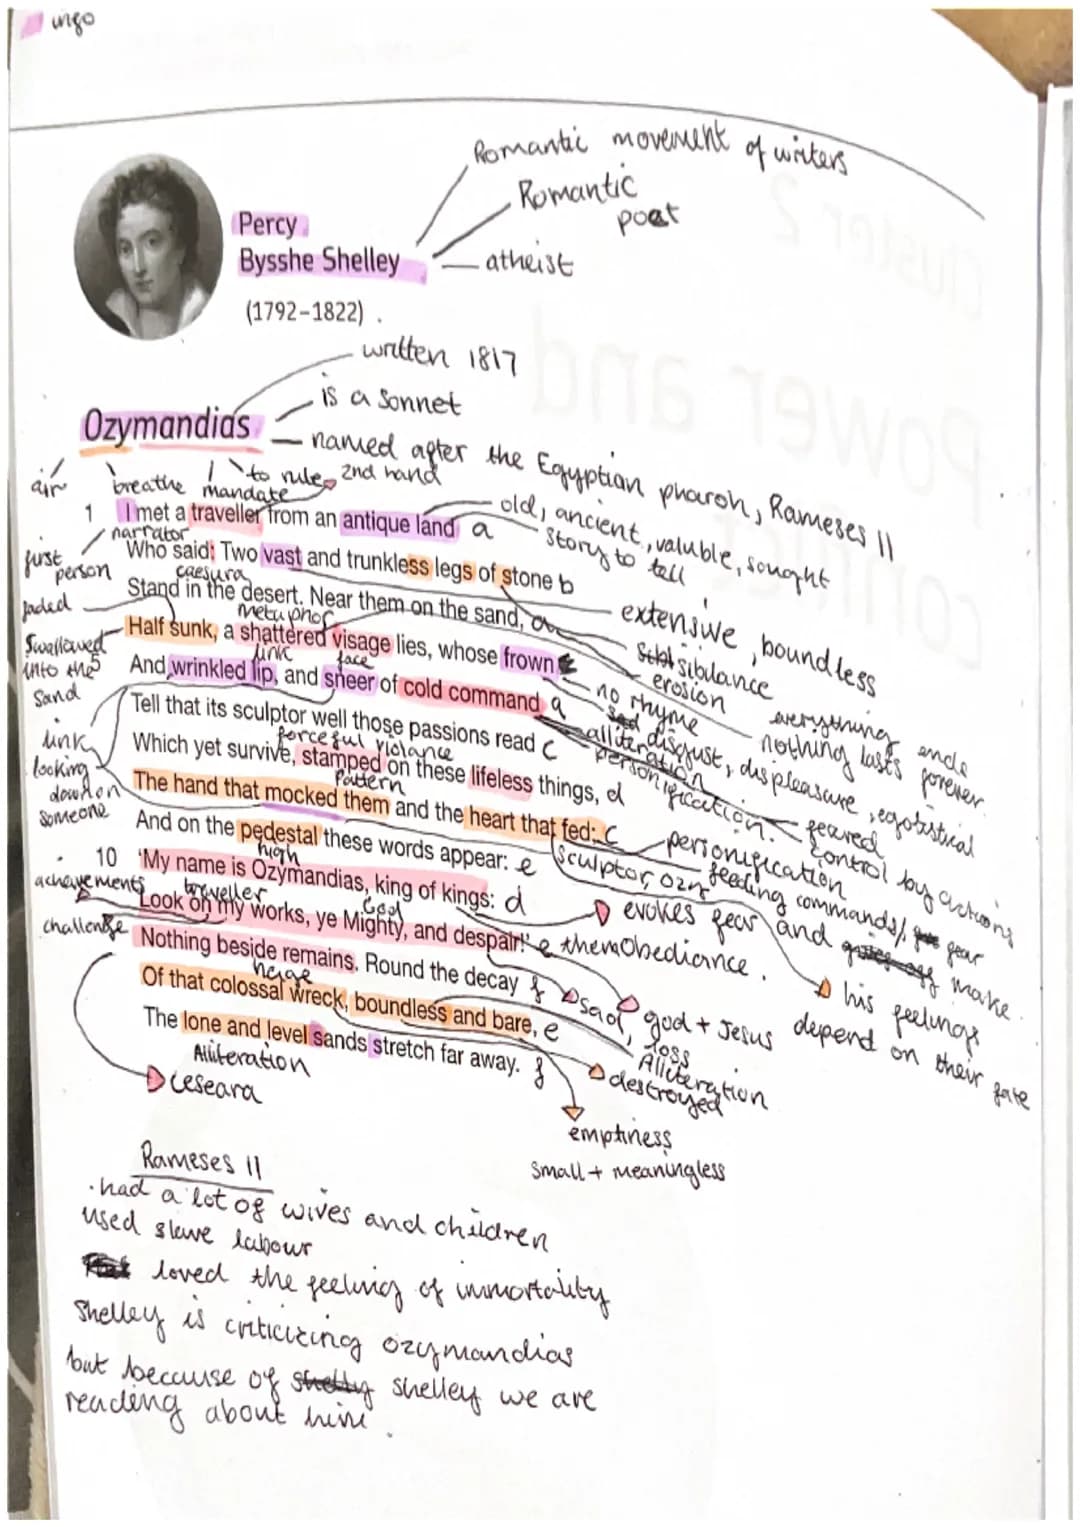 ingo
Romantic movement of writers
Romantic
poet
atheist
Percy
Bysshe Shelley
(1792–1822)
written 1817
is a sonnet
Ozymandias
named after the Egyptian pharoh, Rameses II
air
breathe
mandate
to rule
2nd hand
old, ancient, valuble, sought
story to tell
1 I met a traveller from an antique land a
narrator
first person
Who said: Two vast and trunkless legs of stone b
caesura
Stand in the desert. Near them on the sand, a
jaded
metuphor
extensive, boundless
sibilance
erosion
everything ends
nothing lasts forever
Half sunk, a shattered visage lies, whose frown
Swallowed into the sand
link
face
no rhyme
disgust, displeasure, egotistical
5 And wrinkled lip, and sneer of cold command a
alliteration
personification.
feared
control by actions
Tell that its sculptor well those passions read c
forceful violance
Which yet survive, stamped on these lifeless things, d
link
looking down on someone
Pattern
The hand that mocked them and the heart that fed: c
personification
feeding commands/ fear
sculptor, ozm
And on the pedestal these words appear: e
high
10 'My name is Ozymandias, king of kings: d
evokes fear and make
them Obediance.
his feelings
depend on their fate
acheivements
traveller
God
Look on my works, ye Mighty, and despair!' e
challenge
Nothing beside remains. Round the decay f
sad, loss
god + Jesus
heige
Of that colossal wreck, boundless and bare, e
Alliteration
destroyed
The lone and level sands stretch far away. f
Alliteration
Ceseara
emptiness
small + meaningless
Rameses II
· had a lot of wives and children
used slave labour
loved the feeling of immortality
Shelley is criticizing ozymandias
but because of shelley we are
reading about him.